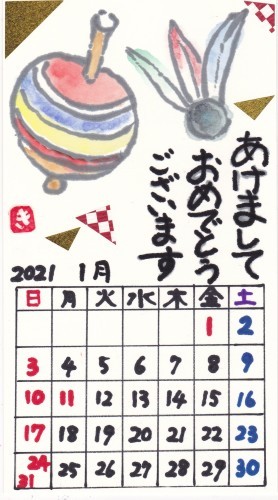 あけまして
おめでとう
ございます
き
2021 1月
日 月 火 水 木 金 土
1 2
3 4 5 6 7 8 9
10 11 12 13 14 15 16
17 18 19 20 21 22 23
24 25 26 27 28 29 30
31